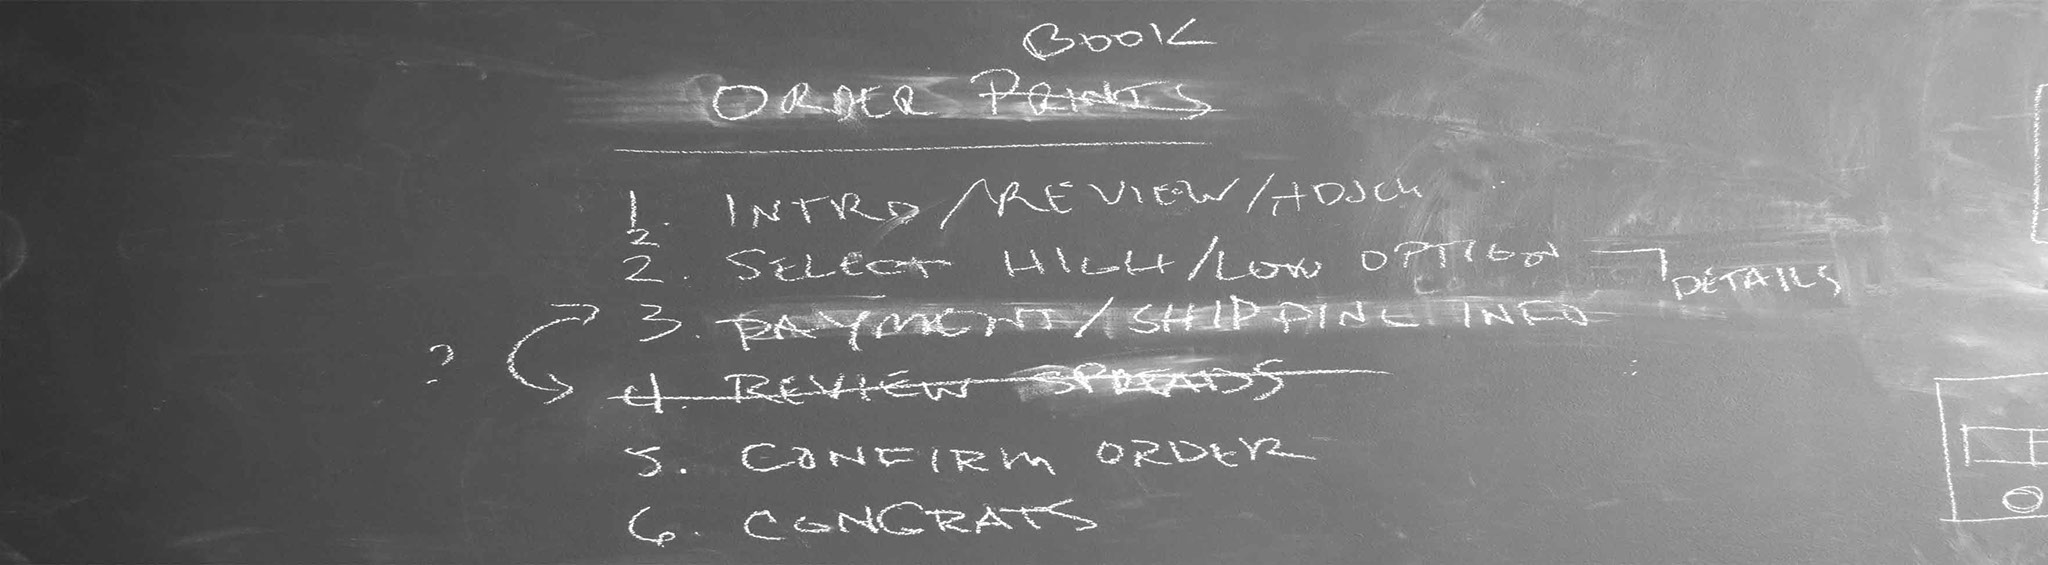 BOOK
ORDER PRINTS
1. INTRO/REVIEW/
2
2. SELECT HIGH/LOW OPTION DETAILS
3. PAYMENT/SHIPPING INFO
?
4. REVIEW SPREADS
5. CONFIRM ORDER
6. CONGRATS